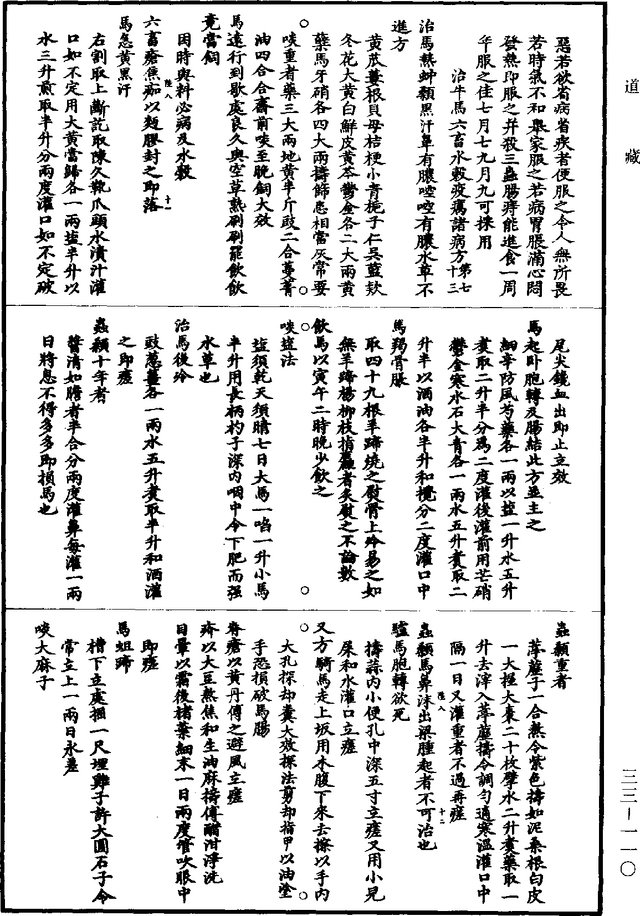 道藏
惡若欲省病省疾者便服之令人無所畏
若時氣不和舉家服之若病胃脹滿心悶
發熱即服之并殺三蟲腸痔能進食一周
年服之佳七月七九月九可採用
治牛馬六畜水穀疫癘諸病方第七十三
治馬熱蚛顙黑汗鼻有膿啌啌有膿水草不
進方
黃芪蔞根貝母桔梗小青梔子仁吳藍欵
冬花大黃白鮮皮黃芩鬱金各二大兩黃
蘗馬牙硝各四大兩擣篩患相當灰常要
啖重者藥三大兩地黃半斤豉二合蔓菁
油四合合齋前啖至晚飼大效
馬遠行到歇處良久與空草熟刷刷罷飲飲
竟當飼
因時與料必病及水穀
六畜瘡焦痂以麵膠封之即落
陸八 十一
馬急黃黑汗
右割取上斷訖取陳久靴爪頭水漬汁灌
口如不定用大黃當歸各一兩鹽半升以
水三升煎取半升分兩度灌口如不定破
尾尖鑱血出即止立效
馬起卧胞轉及腸結此方並主之
細辛防風芍藥各一兩以鹽一升水五升
煮取二升半分為二度灌後灌前用芒硝
鬱金寒水石大青各一兩水五升煮取二
升半以酒油各半升和攪分二度灌口中
馬羯骨脹
取四十九根羊蹄燒之熨骨上冷易之如
無羊蹄楊柳枝指麤者炙熨之不論數
飲馬以寅午二時晚少飲之
啖鹽法
鹽須乾天須晴七日大馬一啗一升小馬
半升用長柄杓子深內咽中令下肥而强
水草也
治馬後冷
豉蔥薑各一兩水五升煮取半升和酒灌
之即瘥
蟲顙十年者
醬清如膽者半合分兩度灌鼻每灌一兩
日將息不得多多即損馬也
蟲顙重者
葶藶子一合熬令紫色擣如泥桑根白皮
一大握大棗二十枚擘水二升煮藥取一
升去滓入葶藶擣令調匀適寒溫灌口中
隔一日又灌重者不過再瘥
蟲顙馬鼻沫出梁腫起者不可治也
陸八 十二
驢馬胞轉欲死
擣蒜內小便孔中深五寸立瘥又用小兒
屎和水灌口立瘥
又方騎馬走上坂用木腹下來去擦以手內
大孔探却糞大效探法剪却指甲以油塗
手恐損破馬腸
脊瘡以黃丹傅之避風立瘥
疥以大豆熬焦和生油麻擣傅醋泔淨洗
目暈以霜後楮葉細末一日兩度管吹眼中
即瘥
馬蛆蹄
槽下立處掘一尺埋雞子許大圓石子令
常立上一兩日永差
啖大麻子
三三—一一〇